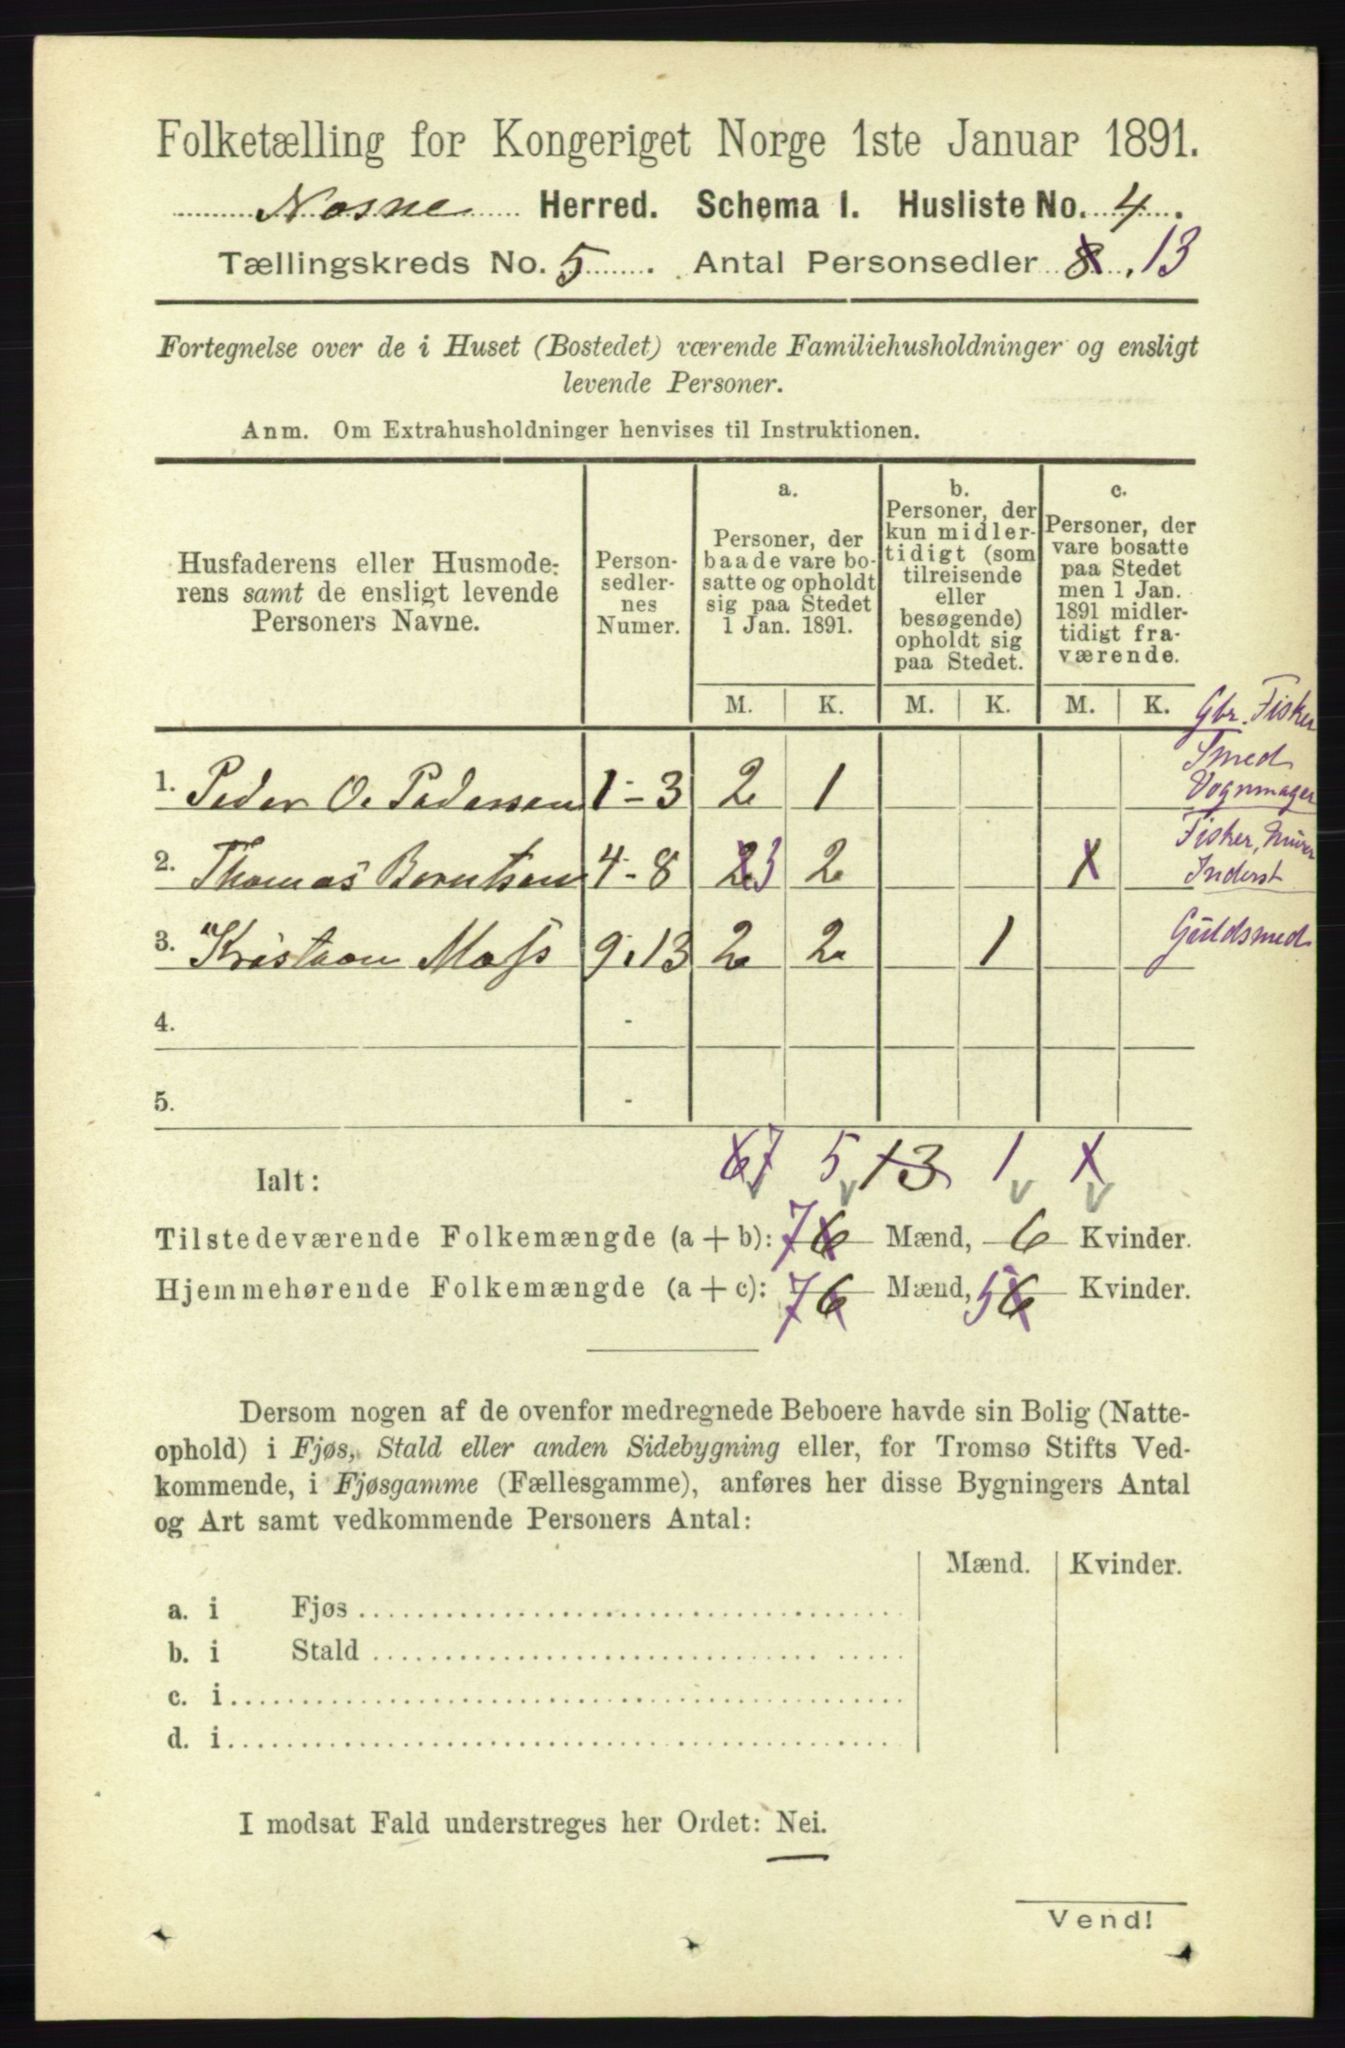 Folketælling for Kongeriget Norge 1ste Januar 1891.
Nosne Herred. Schema I. Husliste No. 4.
Tællingskreds No. 5. Antal Personsedler 8. 13
Fortegnelse over de i Huset (Bostedet) værende Familiehusholdninger og ensligt
levende Personer.
Anm. Om Extrahusholdninger henvises til Instruktionen.
Husfaderens eller Husmode-
rens samt de ensligt levende
Personers Navne.
Person-
sedler-
nes
Numer.
a.
Personer, der
baade vare bo-
satte og opholdt
sig paa Stedet
1 Jan. 1891.
b.
Personer, der
kun midler-
tidigt (som
tilreisende
eller
besøgende)
opholdt sig
paa Stedet.
c.
Personer, der
vare bosatte
paa Stedet
men 1 Jan.
1891 midler-
tidigt fra-
værende.
M. K. M. K. M. K.
Gbr. Fisker
Smed
Vognmager
1. Peder O. Pedersen 1-3 2 1
2. Thomas Berntsen 4-8 2 3 2 1
Fisker, Murer
Inderst
3. Kristian Moss 9-13 2 2 1 Guldsmed
4. -
5. -
Ialt: 6 7 5 13 1 1
Tilstedeværende Folkemængde (a + b): 7 6 Mænd, 6 Kvinder.
Hjemmehørende Folkemængde (a + c): 7 6 Mænd, 5 6 Kvinder.
Dersom nogen af de ovenfor medregnede Beboere havde sin Bolig (Natte-
ophold) i Fjøs, Stald eller anden Sidebygning eller, for Tromsø Stifts Ved-
kommende, i Fjøsgamme (Fællesgamme), anføres her disse Bygningers Antal
og Art samt vedkommende Personers Antal:
Mænd. Kvinder.
a. i Fjøs
b. i Stald
c. i
d. i
I modsat Fald understreges her Ordet: Nei.
Vend!